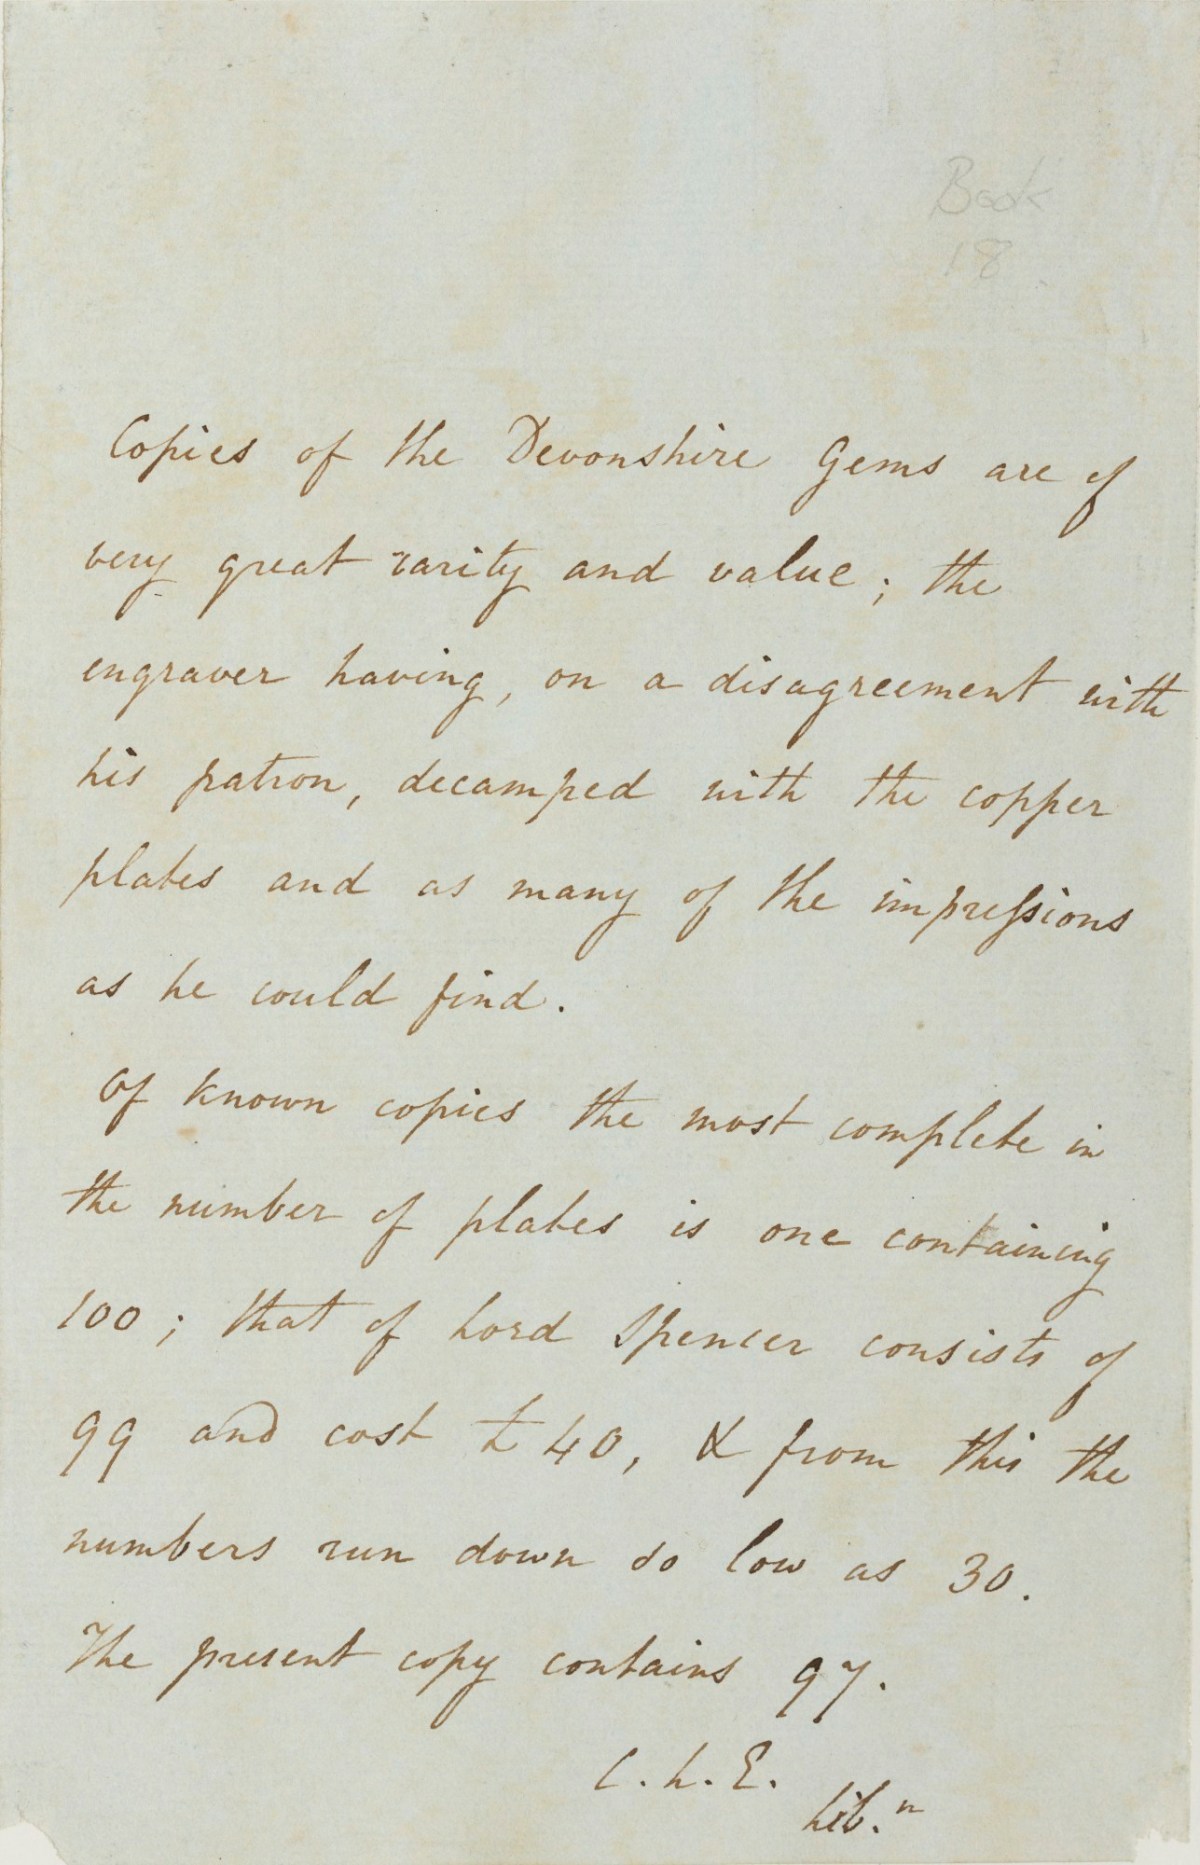 Book
18
Copies of the Devonshire Gems are of
very great rarity and value; the
engraver having, on a disagreement with
his patron, decamped with the copper
plates and as many of the impreſsions
as he could find.
Of known copies the most complete in
the number of plates is one containing
100; that of Lord Spencer consists of
99 and cost £40, & from this the
numbers run down so low as 30.
The present copy contains 97.
C. L. E.
Lib.ⁿ